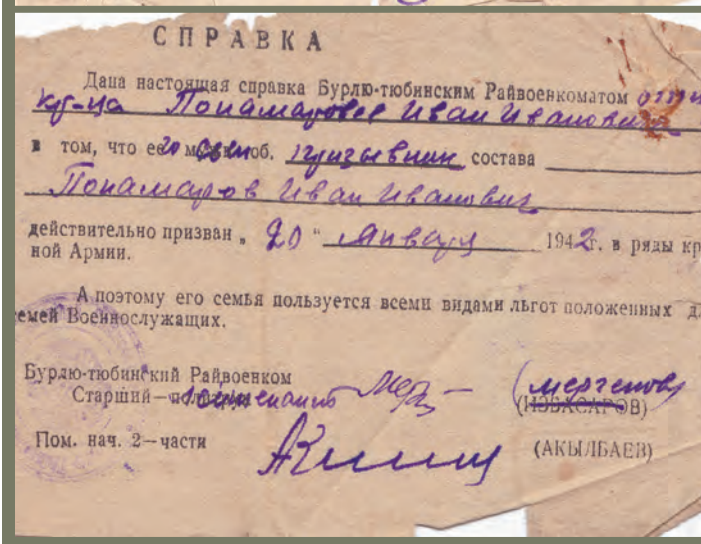 СПРАВКА
Дана настоящая справка Бурлю-тюбинским Райвоенкоматом
кр-ца Понамарев Иван Иванович
в том, что ее об. призывник состава
Понамаров Иван Иванович
действительно призван „ 20 “ января 1942 г. в ряды кр
ной Армии.
А поэтому его семья пользуется всеми видами льгот положенных д
емей Военнослужащих.
Бурлю-тюбинский Райвоенком
Старший— (Мергенов)
(ИЗБАСАРОВ)
Пом. нач. 2—части (АКЫЛБАЕВ)